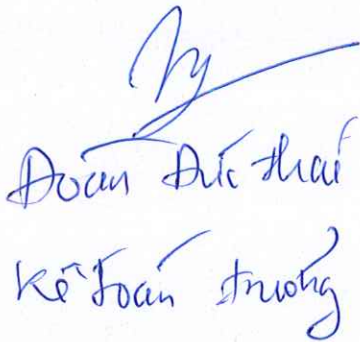 Đoàn Đức Thái
Kế toán trưởng